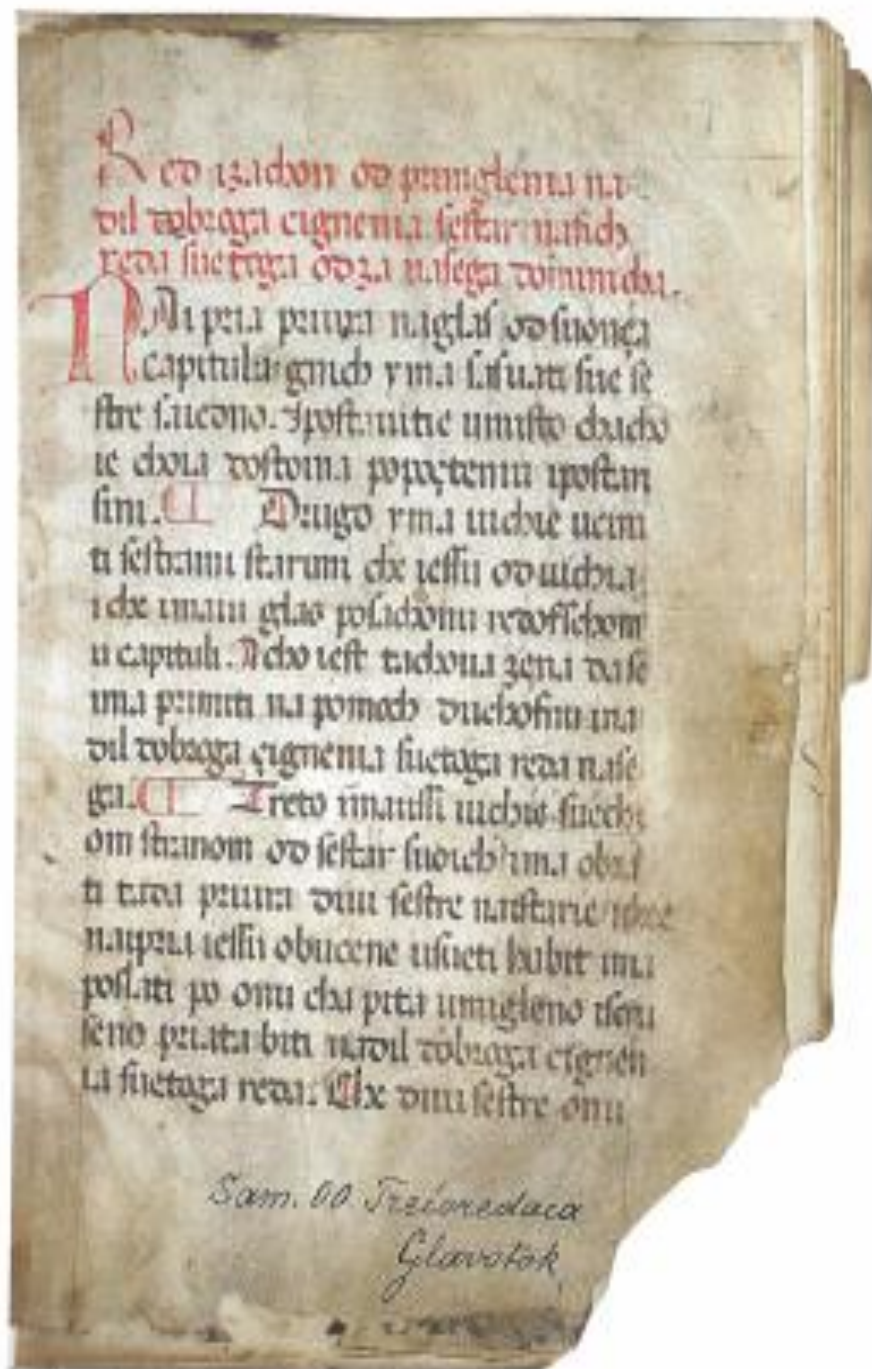 Red izachon od primglenia na
dil dobroga cignenia sestar nasich
reda suetoga odza nasega dominicha.
NAi pria priura naglas od suonça
capitula gnich yma sasuati sue se
stre saedno. Ipostauitie umisto chacho
ie choia dostoina popocteniu ipostari
sini. Drugo yma uichie ucini
ti sestrami starimi che iessu od uichia
i che imaiu glas posachonu redofschom
u capituli. Acho iest tachoua zena da se
ima primiti na pomoch duchofnu ina
dil dobroga çignenia suetoga reda nase
ga. Treto uichie
om stranom od sestar suoich ima obra
ti tada priura duu sestre naistarie
naipria iessu obucene usueti habit ima
poslati po onu cha pita umigleno
seno priata biti nadil dobroga cignen
ia suetoga reda. Che duu sestre onu
Sam. OO. Trećoredaca
Glavotok